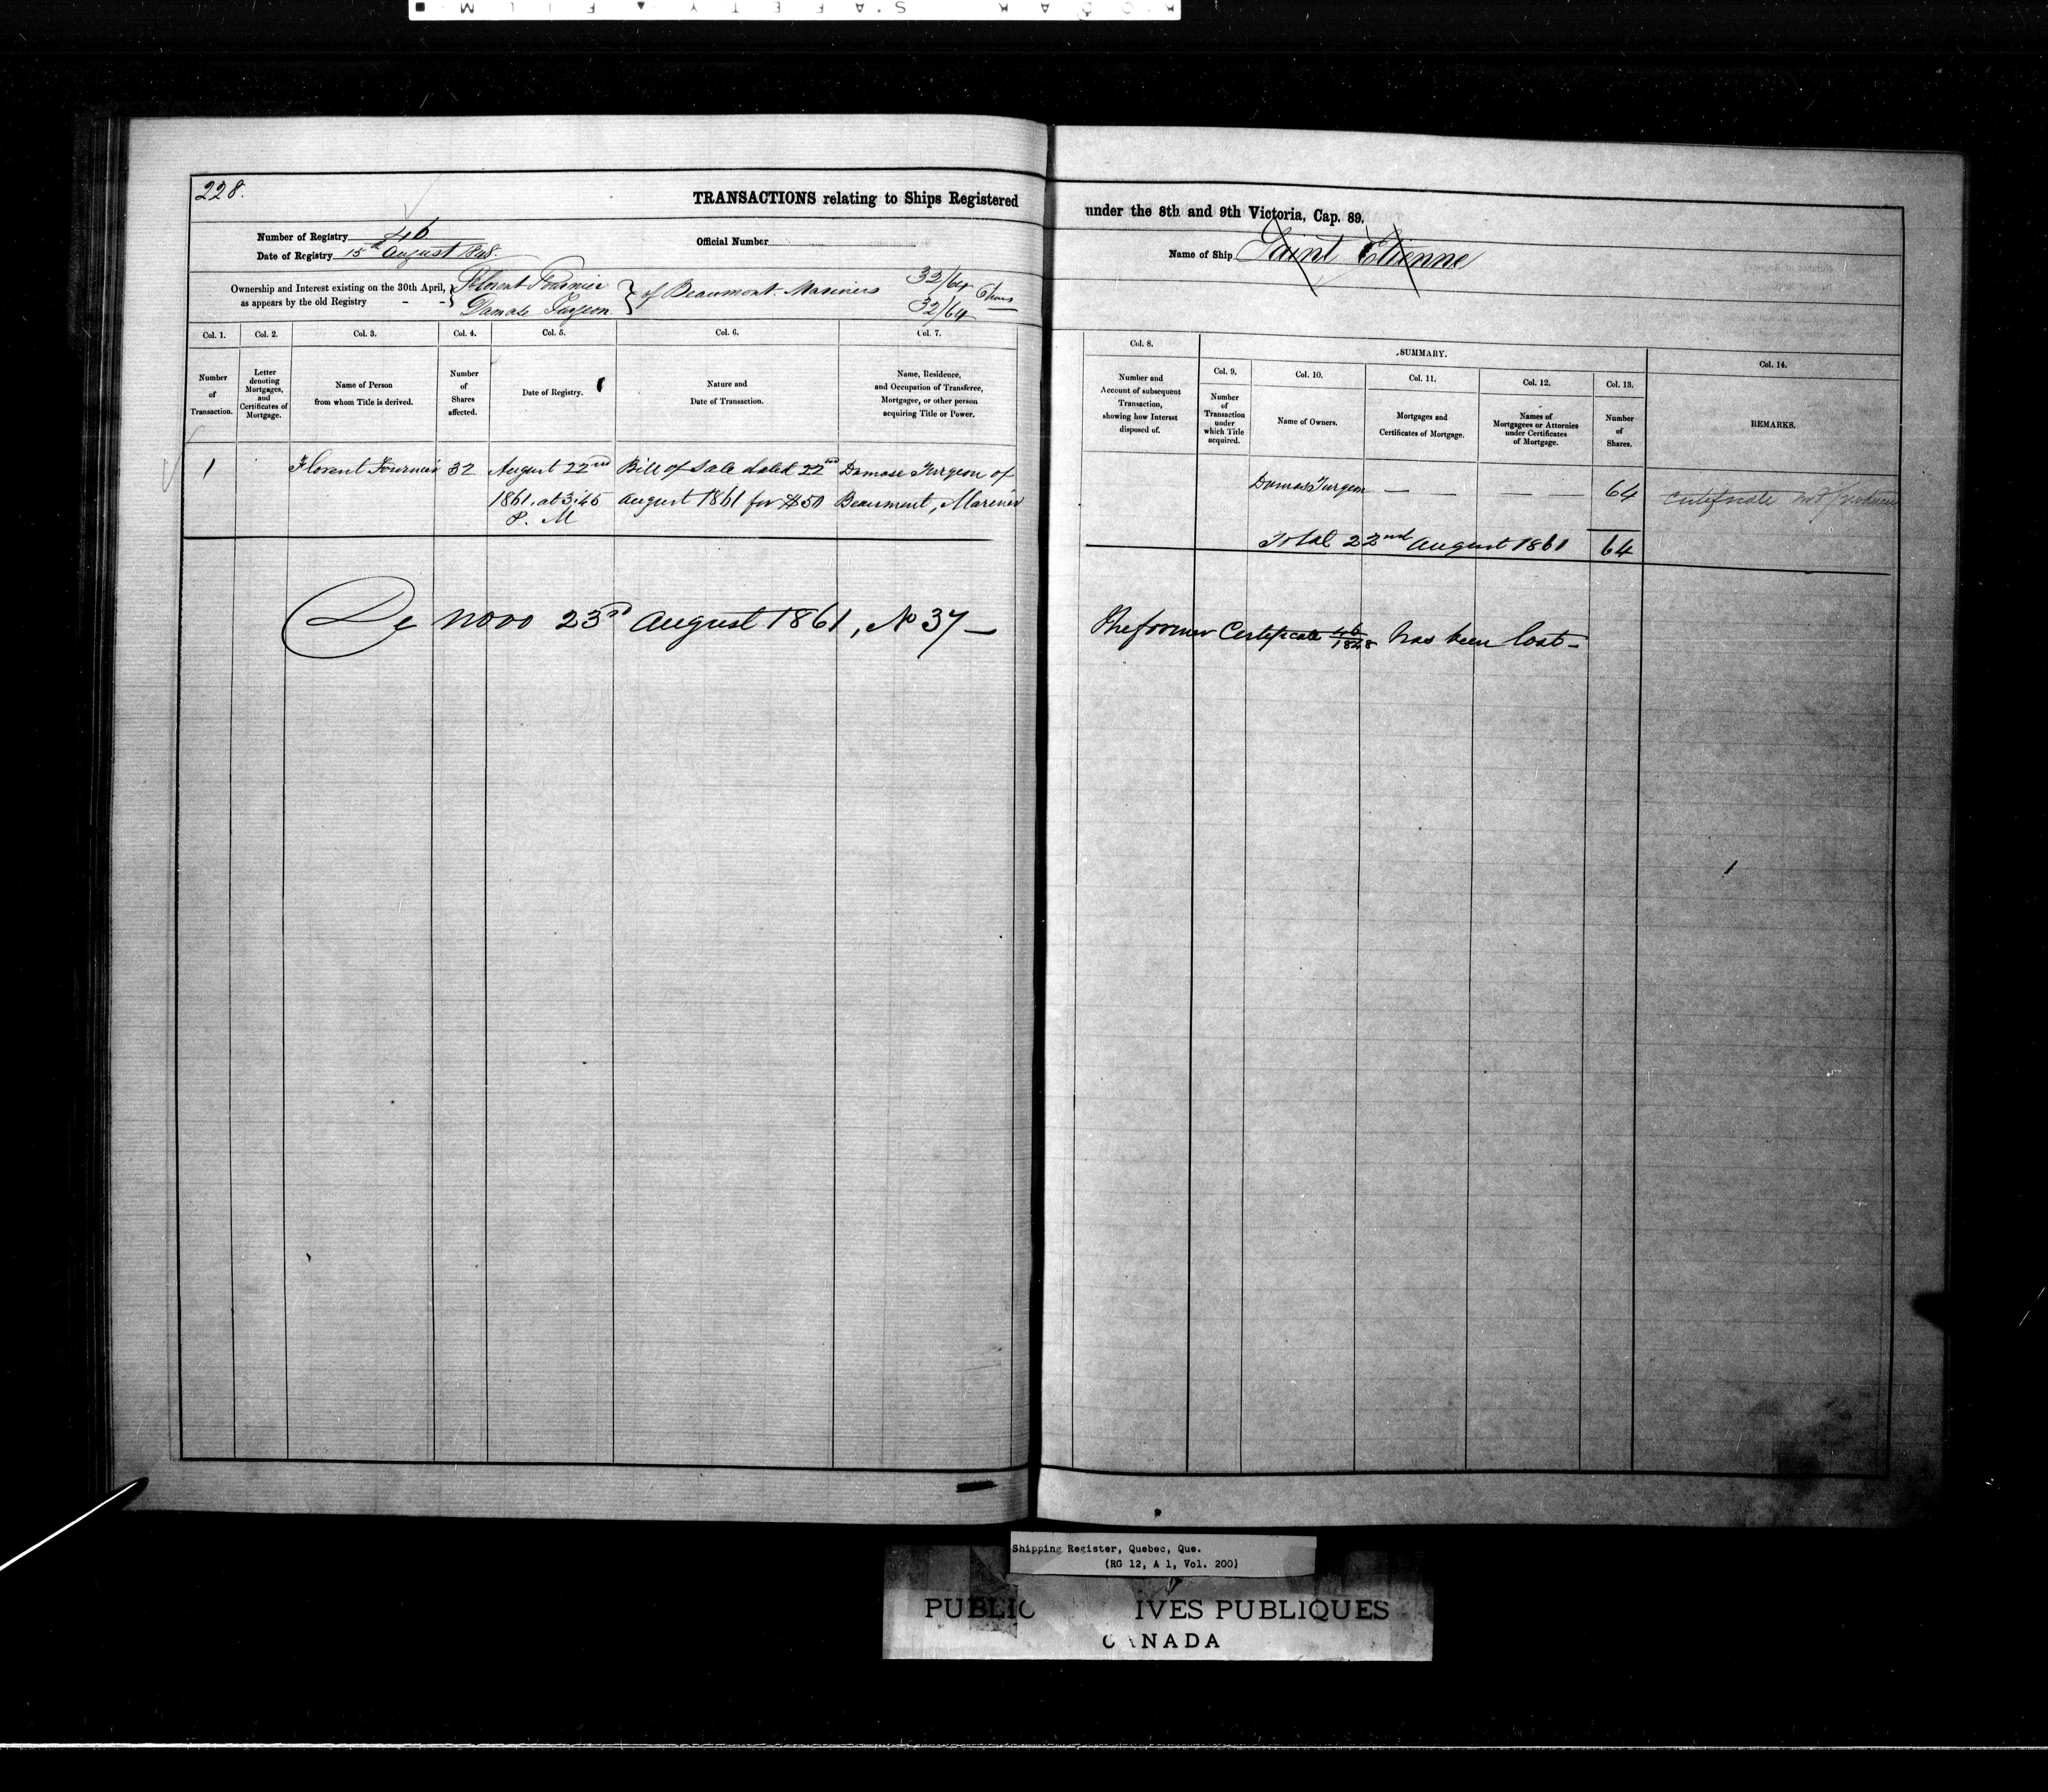 228.
TRANSACTIONS relating to Ships Registered
under the 8th and 9th Victoria, Cap. 89.
Number of Registry 46
Official Number
Name of Ship Saint Etienne
Date of Registry 15th August 1848.
Ownership and Interest existing on the 30th April,
as appears by the old Registry - -
Florent Fournier
Damase Turgeon
} of Beaumont Mariners
32/64
32/64
Col. 1.
Col. 2.
Col. 3.
Col. 4.
Col. 5.
Col. 6.
Col. 7.
Number
of
Transaction.
Letter
denoting
Mortgages,
and
Certificates of
Mortgage.
Name of Person
from whom Title is derived.
Number
of
Shares
affected.
Date of Registry.
Nature and
Date of Transaction.
Name, Residence,
and Occupation of Transferee,
Mortgagee, or other person
acquiring Title or Power.
Col. 8.
Number and
Account of subsequent
Transaction,
showing how Interest
disposed of.
SUMMARY.
Col. 9.
Col. 10.
Col. 11.
Col. 12.
Col. 13.
Col. 14.
Number
of
Transaction
under
which Title
acquired.
Name of Owners.
Mortgages and
Certificates of Mortgage.
Names of
Mortgagees or Attornies
under Certificates
of Mortgage.
Number
of
Shares.
REMARKS.
1
Florent Fournier
32
August 22nd
1861, at 3.45
P. M
Bill of Sale dated 22nd
August 1861 for $50
Damase Turgeon of
Beaumont, Mariner
Damas Turgeon — — — — — 64
Certificate not
Total 22nd August 1861 64
De novo 23rd August 1861, No 37 —
The former Certificate 46/1848 has been lost —
Shipping Register, Quebec, Que.
(RG 12, A 1, Vol. 200)
PUBLIC IVES PUBLIQUES
CANADA